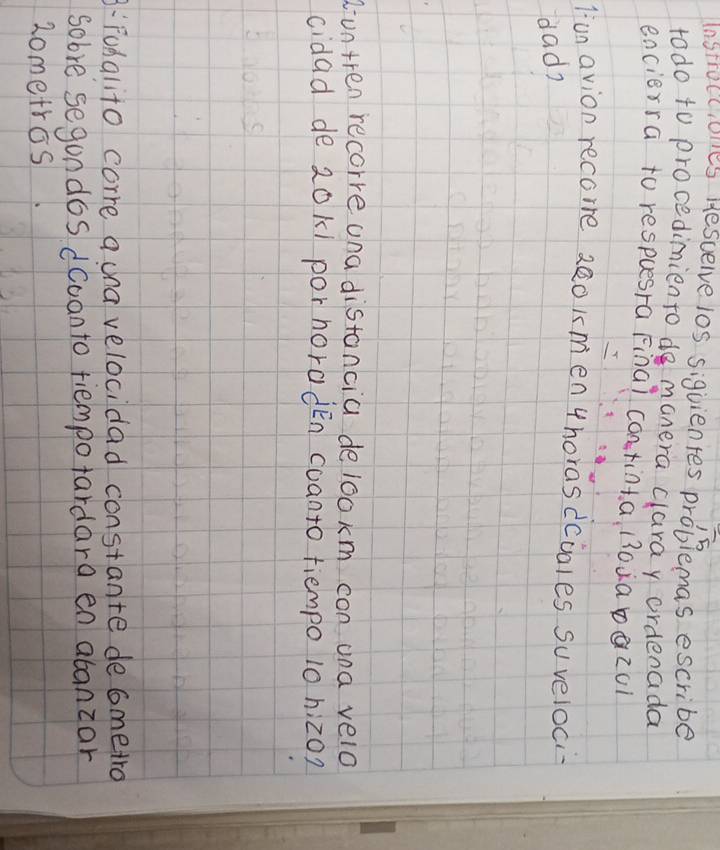 Instrucciones Resuelve los siguientes problemas escribe
todo tu procedimiento de manera clara y ordenada
encierra tu respuesta Final con tinta Roja o azul
1: un avion recorre 280 km en 4 horas ¿Cuales su veloci-
dad?
2: un tren recorre una distancia de 100 km con una velo
cidad de 20 Kl por hora ¿En cuanto tiempo lo hizo?
3: Fulalito corre a una velocidad constante de 6 metro
sobre segundos ¿Cuanto tiempo tardara en abanzar
20 metros.